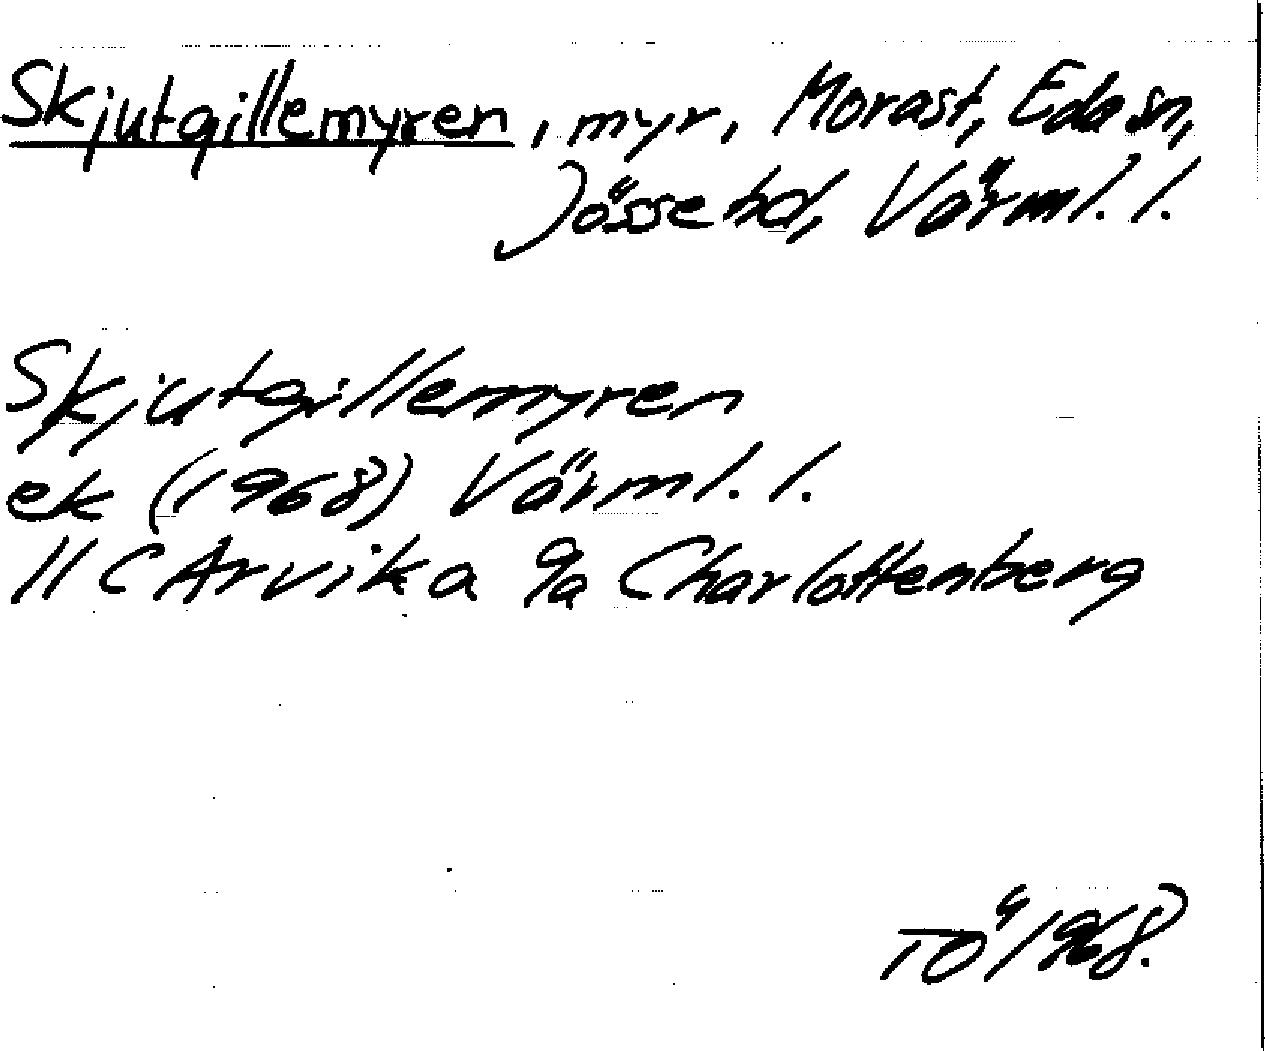 Skjutgillemyren, myr, Morast, Eda sn,
Jösse hd, Värml. l.
Skjutgillemyren
ek (1968) Värml. l.
11 C Arvika 9a Charlottenberg
TÖ 1968.